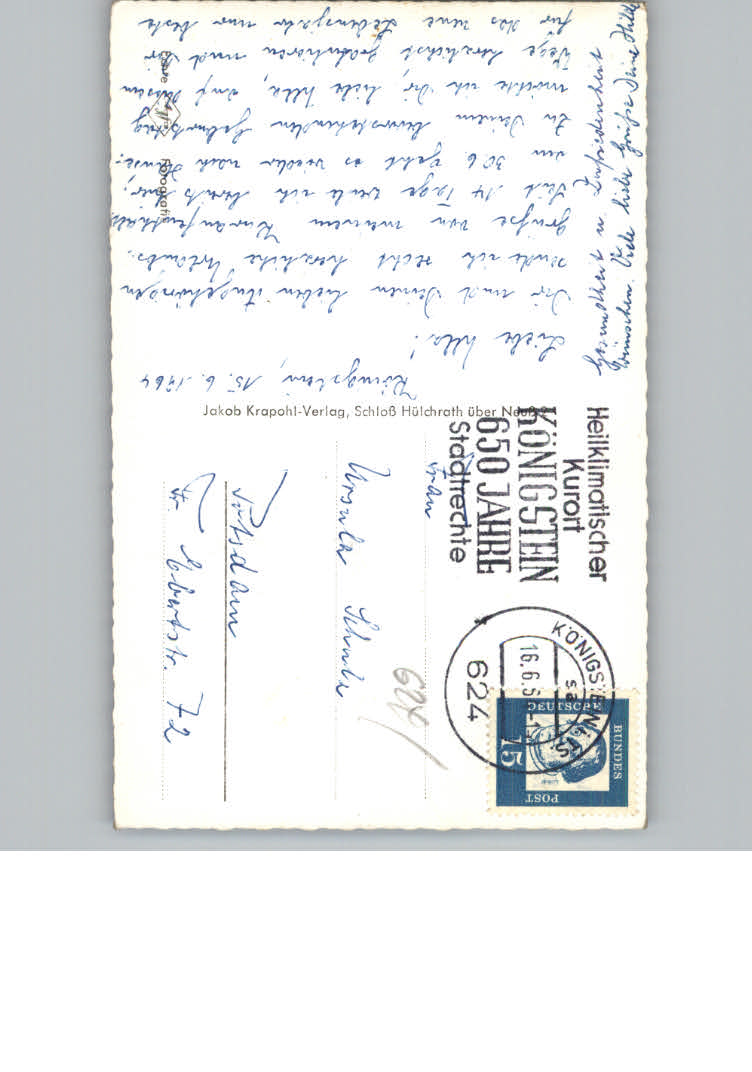 Königstein, 15.6.1964
Liebe Ulla!
Dir und Deinen lieben Angehörigen
sende ich recht herzliche Urlaubs-
grüße von meinem Kuraufenthalt.
Seit 14 Tage weile ich bereits hier,
am 30.6. geht es wieder nach Hause.
Zu Deinem bevorstehenden Geburtstag
möchte ich Dir, liebe Ulla, auf diesem
Wege herzlichst gratulieren und Dir
für das neue Lebensjahr nur beste
Gesundheit u. Zufriedenheit
wünschen. Viele liebe Grüße Deine Hilde
Foto-grafie
Jakob Krapohl-Verlag, Schloß Hülchrath über Neuß
Heilklimatischer
Kurort
KÖNIGSTEIN
650 JAHRE
Stadtrechte
KÖNIGSTEIN
16.6.
624
DEUTSCHE
BUNDES
POST
15
Frau
Ursula Schulz
Potsdam
Fr. Ebertstr. 72
624